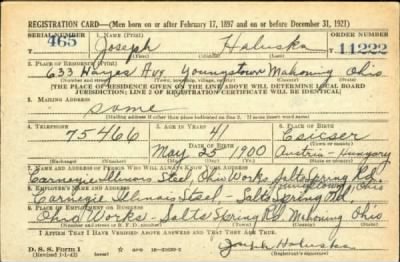 REGISTRATION CARD—(Men born on or after February 17, 1897 and on or before December 31, 1921)
SERIAL NUMBER 1. NAME (Print) ORDER NUMBER
465 Joseph Haluska 11222
(First) (Middle) (Last)
2. PLACE OF RESIDENCE (Print)
633 Hayes Avy Youngstown Mahoning Ohio
(Number and street) (Town, township, village, or city) (County) (State)
[THE PLACE OF RESIDENCE GIVEN ON THE LINE ABOVE WILL DETERMINE LOCAL BOARD
JURISDICTION; LINE 2 OF REGISTRATION CERTIFICATE WILL BE IDENTICAL]
3. MAILING ADDRESS
same
[Mailing address if other than place indicated on line 2. If same insert word same]
4. TELEPHONE 5. AGE IN YEARS 6. PLACE OF BIRTH
75466 41 Csicser
DATE OF BIRTH (Town or county)
May 25 1900 Austria - Hungary
(Exchange) (Number) (Mo.) (Day) (Yr.) (State or country)
7. NAME AND ADDRESS OF PERSON WHO WILL ALWAYS KNOW YOUR ADDRESS
Carnegie Illinois Steel, Ohio Works Salt Spring Rd.
Youngstown, Ohio
8. EMPLOYER'S NAME AND ADDRESS
Carnegie Illinois Steel, - Salt Spring Rd,
9. PLACE OF EMPLOYMENT OR BUSINESS
Ohio Works - Salt Spring Rd. Mahoning Ohio
(Number and street or R. F. D. number) (Town) (County) (State)
I AFFIRM THAT I HAVE VERIFIED ABOVE ANSWERS AND THAT THEY ARE TRUE.
D. S. S. Form 1
(Revised 1-1-42) (over)
Joseph Haluska
(Registrant's signature)